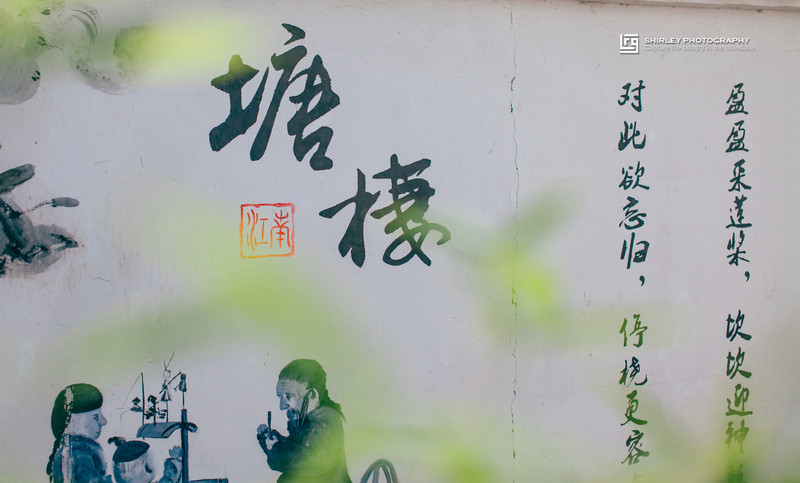 塘栖
江南
盈盈采莲桨，坎坎迎神
对此欲忘归，停桡更容
SHIRLEY PHOTOGRAPHY
Capture the beauty in the mundane